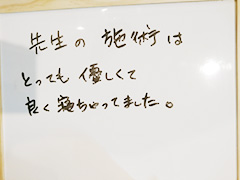 先生の施術は
とっても優しくて
良く寝ちゃってました。